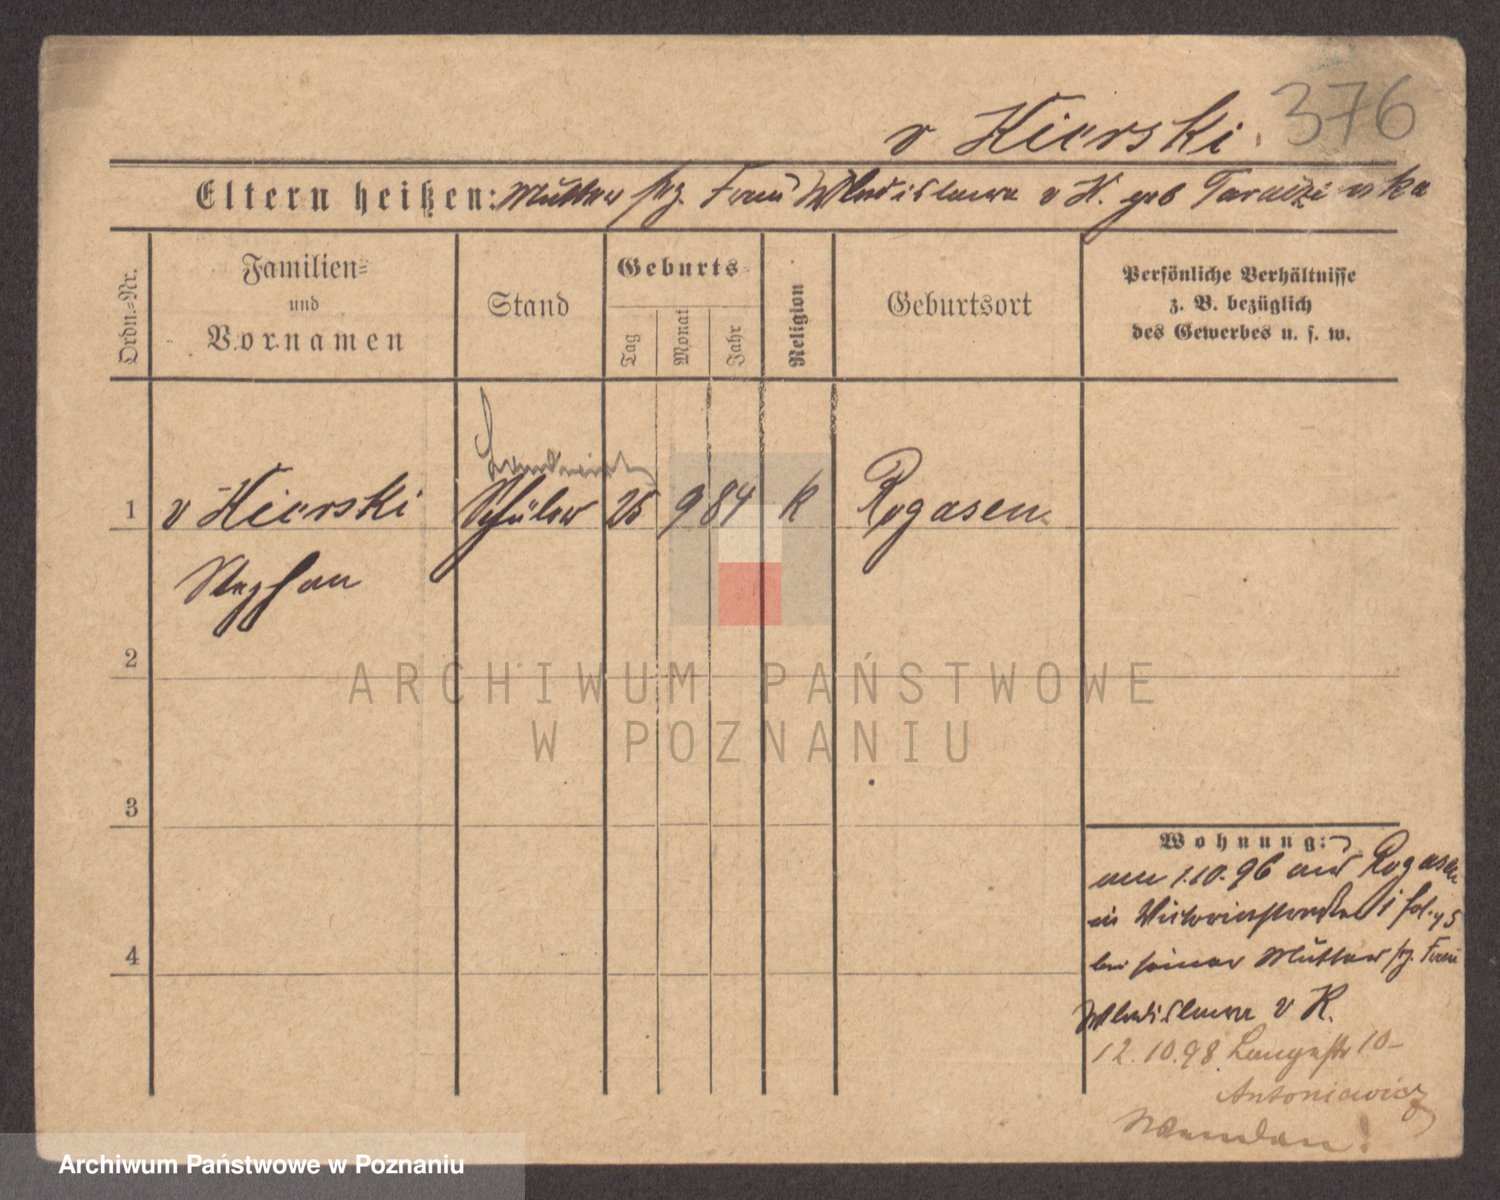 v Kierski. 376
Eltern heißen: Mutter Frau Wladislawa v K. geb
Ordn.=Nr.
Familien=
und
Vornamen
Stand
Geburts=
Tag
Monat
Jahr
Religion
Geburtsort
Persönliche Verhältnisse
z. B. bezüglich
des Gewerbes u. s. w.
Landwirth
1 v Kierski Schüler 25 9 84 k Rogasen
Stephan
2
ARCHIWUM PAŃSTWOWE
W POZNANIU
3
4
Wohnung:
am 1.10.96 aus Rogasen
in Victoriastraße
bei seiner Mutter Frau
Wladislawa v K.
12.10.98 Langestr 10-
Antoniewicz
Archiwum Państwowe w Poznaniu